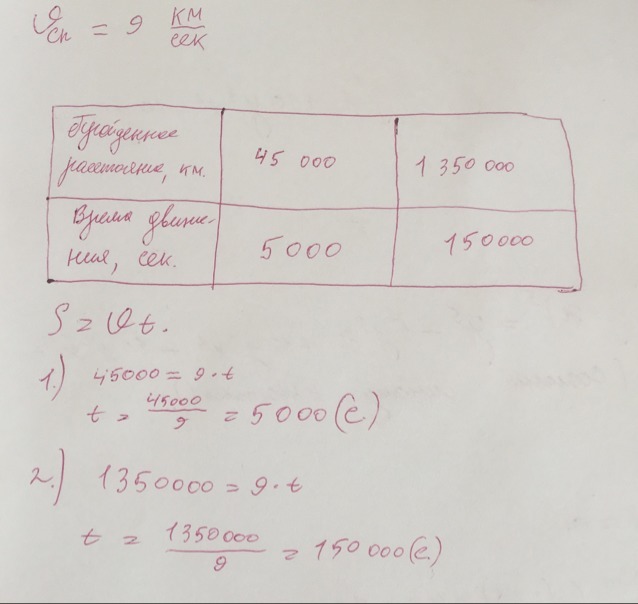 𝑣сп = 9 км/сек
Пройденное расстояние, км. 45 000 1 350 000
Время движе-ния, сек. 5000 150000
S = vt.
1.) 45000 = 9·t
t = 45000/9 = 5000(с)
2.) 1350000 = 9·t
t = 1350000/9 = 150000(с)